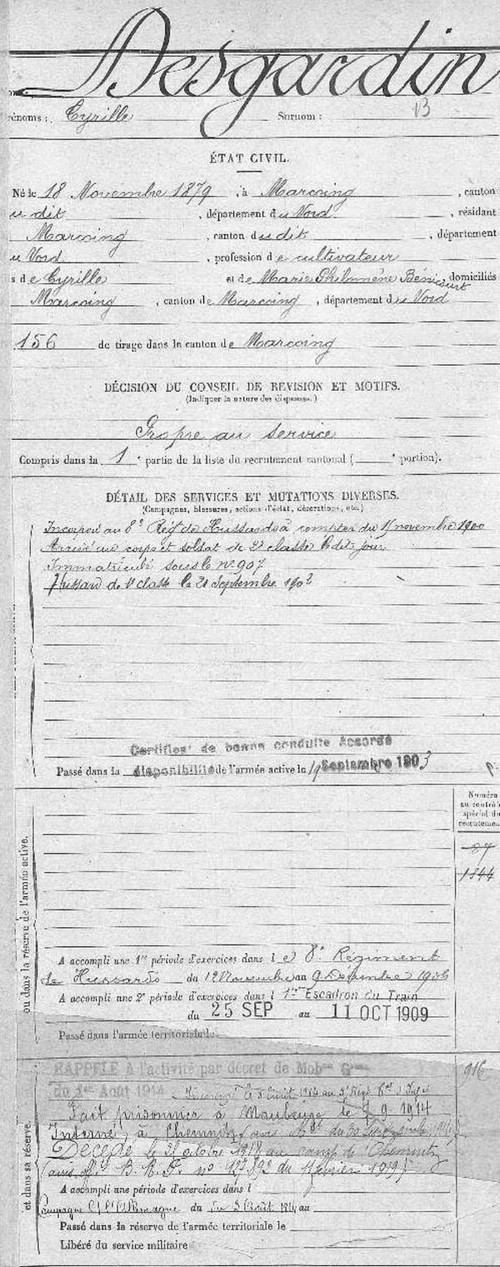 Desgardin
Prénoms : Cyrille Surnom : 13
ÉTAT CIVIL.
Né le 18 Novembre 1879, à Marcoing, canton
du dit, département du Nord, résidant
Marcoing, canton du dit, département
du Nord, profession de cultivateur
s de Cyrille et de Marie Philomène Bénicourt, domiciliés
Marcoing, canton de Marcoing, département du Nord
156 de tirage dans le canton de Marcoing
DÉCISION DU CONSEIL DE REVISION ET MOTIFS.
(Indiquer la nature des dispenses.)
Propre au service
Compris dans la 1e partie de la liste du recrutement cantonal ( e portion).
DÉTAIL DES SERVICES ET MUTATIONS DIVERSES.
(Campagnes, blessures, actions d'éclat, décorations, etc.)
Incorporé au 8e Régt de Hussards à compter du 15 novembre 1900
Arrivé au corps et soldat de 2e classe le dit jour
Immatriculé sous le n° 907
Hussard de 1e classe le 21 Septembre 1902
Certificat de bonne conduite Accordé
Passé dans la disponibilité de l'armée active le 19 Septembre 1903
Numéro
au contrôle
spécial du
recrutement
87
1844
ou dans la réserve de l'armée active.
A accompli une 1re période d'exercices dans le 8e Régiment
de Hussards du 12 Novembre au 9 Décembre 1906
A accompli une 2e période d'exercices dans le 1er Escadron du Train
du 25 SEP au 11 OCT 1909
Passé dans l'armée territoriale
RAPPELÉ à l'activité par décret de Mobon Gle
916
du 1er Août 1914
Fait prisonnier à Maubeuge le 9 1914
Interné à Chemnitz
Décédé le 31 octobre 1918 au camp de Chemnitz
et dans sa réserve.
A accompli une période d'exercices dans l
Campagne Ct l'Allemagne du du 3 Août 1914 au
Passé dans la réserve de l'armée territoriale le
Libéré du service militaire